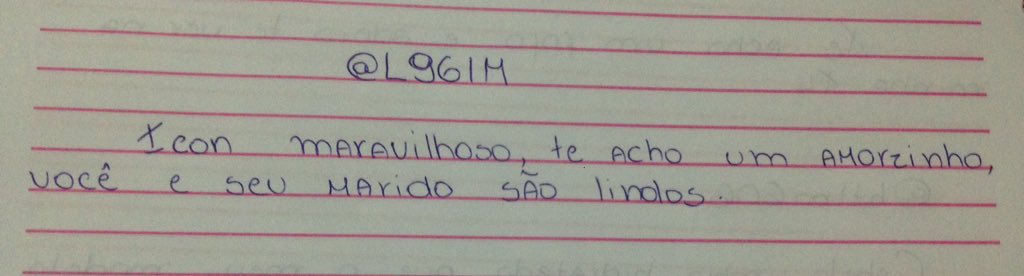 @L961M
Icon maravilhoso, te acho um amorzinho,
você e seu marido são lindos.